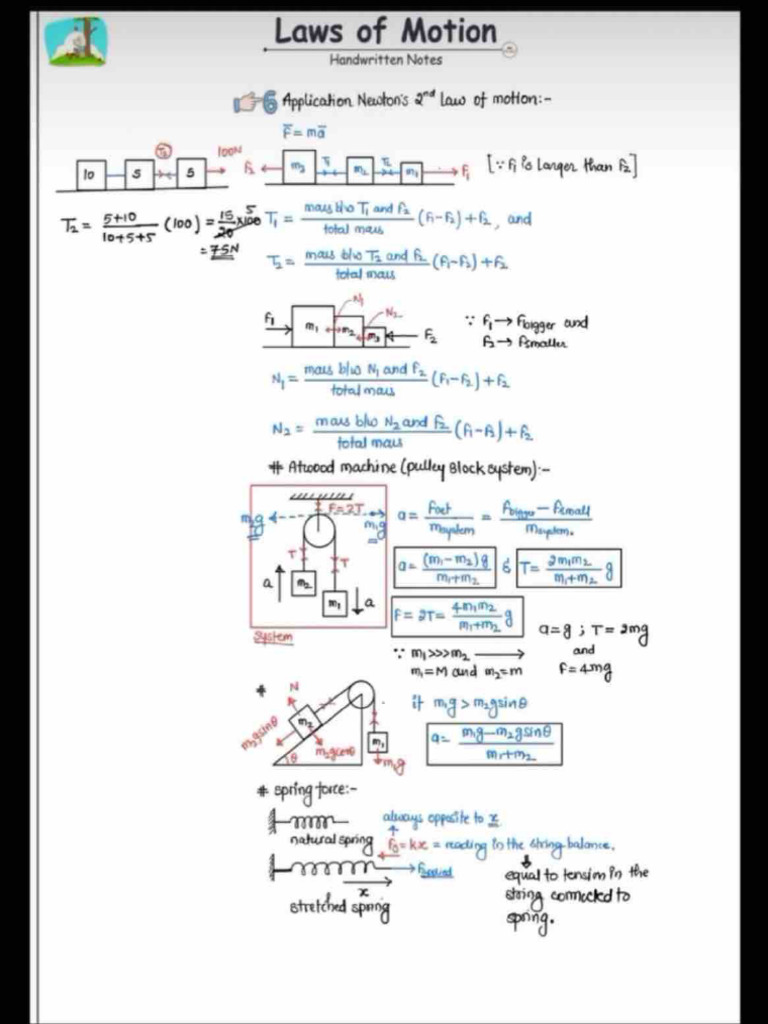 Laws of Motion
Handwritten Notes
6 Application Newton's 2nd Law of motion:-
F̅ = ma̅
10 5 T₂ 5 100N
F₂ m₃ T₁ m₂ T₂ m₁ F₁ [∵ F₁ is larger than F₂]
T₂ = (5+10)/(10+5+5) (100) = 15/20 × 100 5
= 75N
T₁ = (mass b/w T₁ and F₂)/(total mass) (F₁-F₂) + F₂, and
T₂ = (mass b/w T₂ and F₂)/(total mass) (F₁-F₂) + F₂
F₁ m₁ N₁ m₂ N₂ m₃ F₂
∵ F₁ → Fbigger and
F₂ → Fsmaller
N₁ = (mass b/w N₁ and F₂)/(total mass) (F₁-F₂) + F₂
N₂ = (mass b/w N₂ and F₂)/(total mass) (F₁-F₂) + F₂
# Atwood machine (pulley Block system):-
F=2T
m₂g m₁g
T T
a m₂ m₁ a
system
a = Fnet/msystem = (Fbigger - Fsmall)/msystem.
a = (m₁-m₂)g/(m₁+m₂) & T = 2m₁m₂/(m₁+m₂) g
F = 2T = 4m₁m₂/(m₁+m₂) g
∵ m₁>>>m₂ →
m₁=M and m₂=m
a=g ; T=2mg
and
F=4mg
*
N m₂ m₂gsinθ m₂gcosθ θ m₁ m₁g
if m₁g > m₂gsinθ
a = (m₁g-m₂gsinθ)/(m₁+m₂)
# spring force:-
natural spring
always opposite to x
= kx = reading in the string balance.
Fapplied
x
stretched spring
equal to tension in the
string connected to
spring.